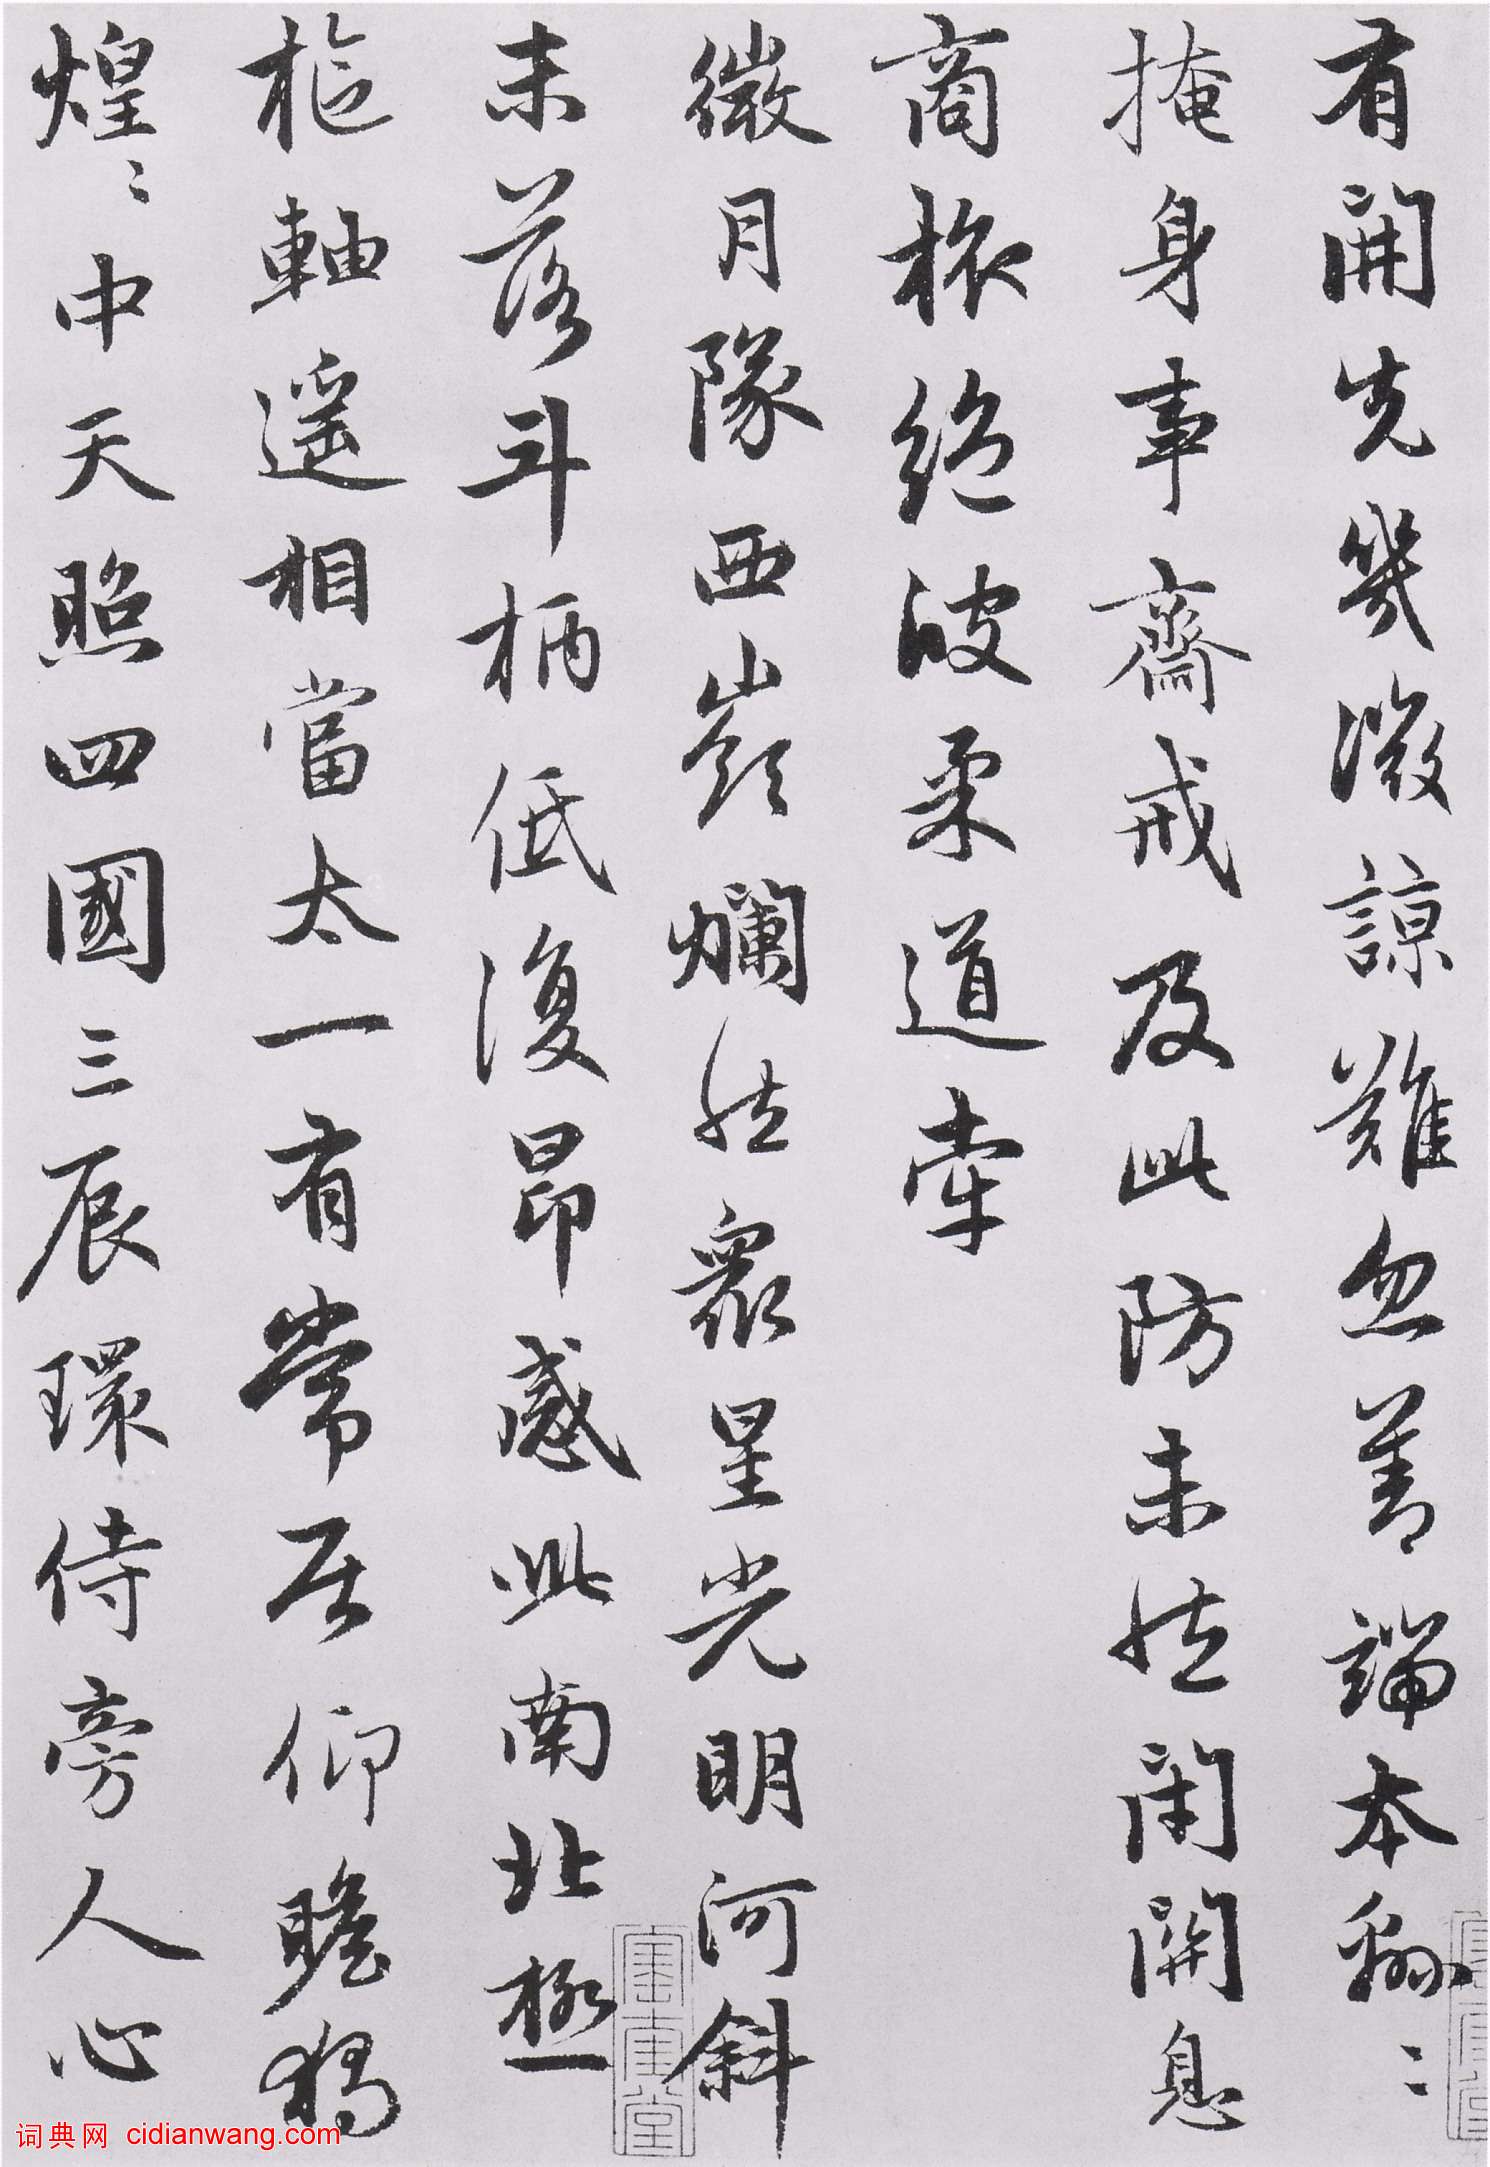 有開先幾微諒難忽善端本綿〻
掩身事齋戒及此防未然閉關息
商旅絕彼柔道牽
微月隊西嶺爛然衆星光明河斜
未落斗柄低復昂感此南北極
樞軸遥相當太一有常居仰瞻獨
煌〻中天照四國三辰環侍旁人心
词典网 cidianwang.com